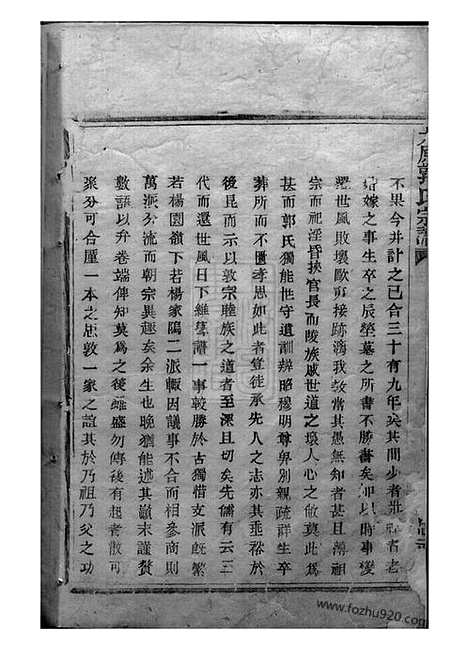 不果今并計之已合三十有九年矣其間少者壯壯者老
婚嫁之事生卒之辰塋墓之所書不勝書矣加以時事變
遷世風敗壞歐可接跡滿我敎常其愚無知者甚且蔑祖
宗而祀淫昏挾官長而陵族戚世道之壞人心之敝莫此爲
甚而郭氏獨能世守遺訓辨昭穆明尊卑別親疏詳生卒
葬所而不匱孝思如此者豈徒承先人之志亦其垂裕於
後昆而示以敦宗睦族之道者至深且切矣先儒有云三
代而還世風日下維譜一事較勝於古獨惜支派旣繁
若楊園嶺下若楊家隖二派輒因議事不合而相參商則
萬派分流而朝宗異趣矣余生也晚猶能述其巔末謹贅
數語以弁卷端俾知莫爲之後雖盛勿傳後有起者散可
聚分可合厪一本之思敦一家之誼其於乃祖乃父之功
郭氏宗譜
www.fozhu920.com